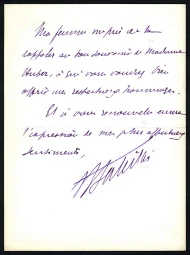 Ma femme me prie de la
rappeler au bon souvenir de Madame
Huber, à qui vous voudrez bien
offrir mes respectueux hommages.
Et à vous renouvelle encore
l'expression de mes plus affectueux
sentiments,